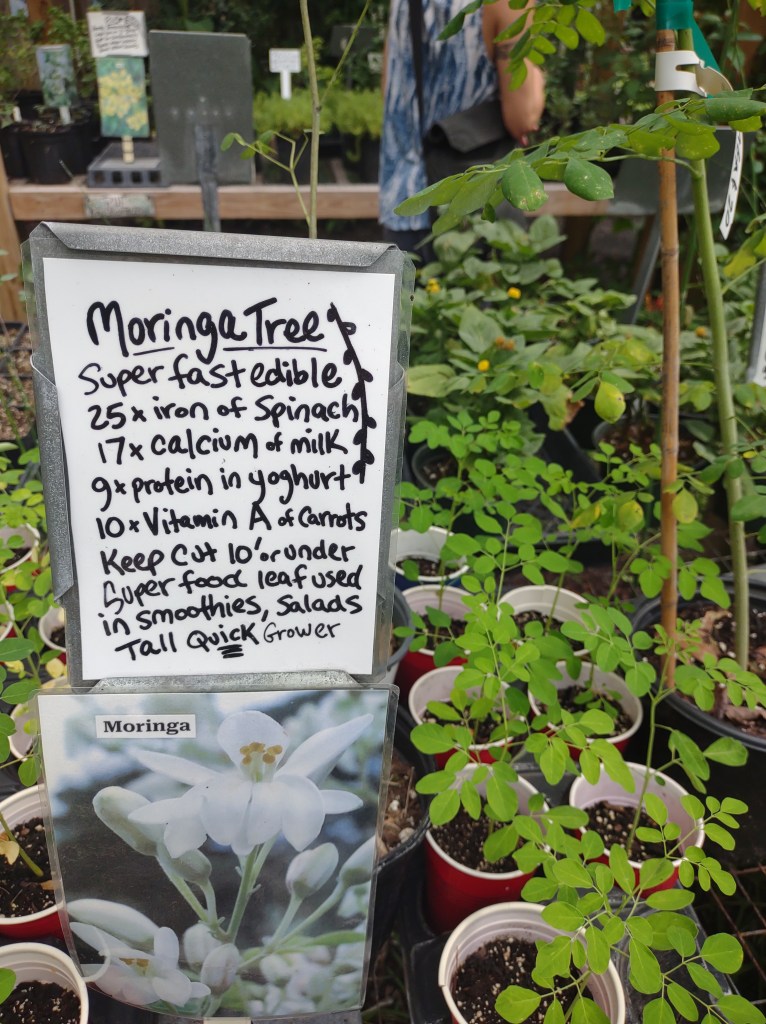 Moringa Tree
Super fast edible
25x iron of Spinach
17x calcium of milk
9x protein in yoghurt
10x Vitamin A of Carrots
Keep Cut 10' or under
Super food leaf used
in smoothies, Salads
Tall Quick Grower
Moringa